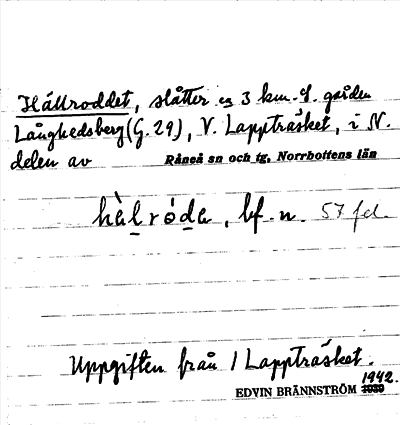 Hällroddet, slåtter ca 3 km. S. gården
Långhedsberg (G. 29), V. Lappträsket, i N.
delen av Råneå sn och tg, Norrbottens län
hàlróda, bf. n. 57 fd.
Uppgiften från 1 Lappträsket.
EDVIN BRÄNNSTRÖM 1939 1942.